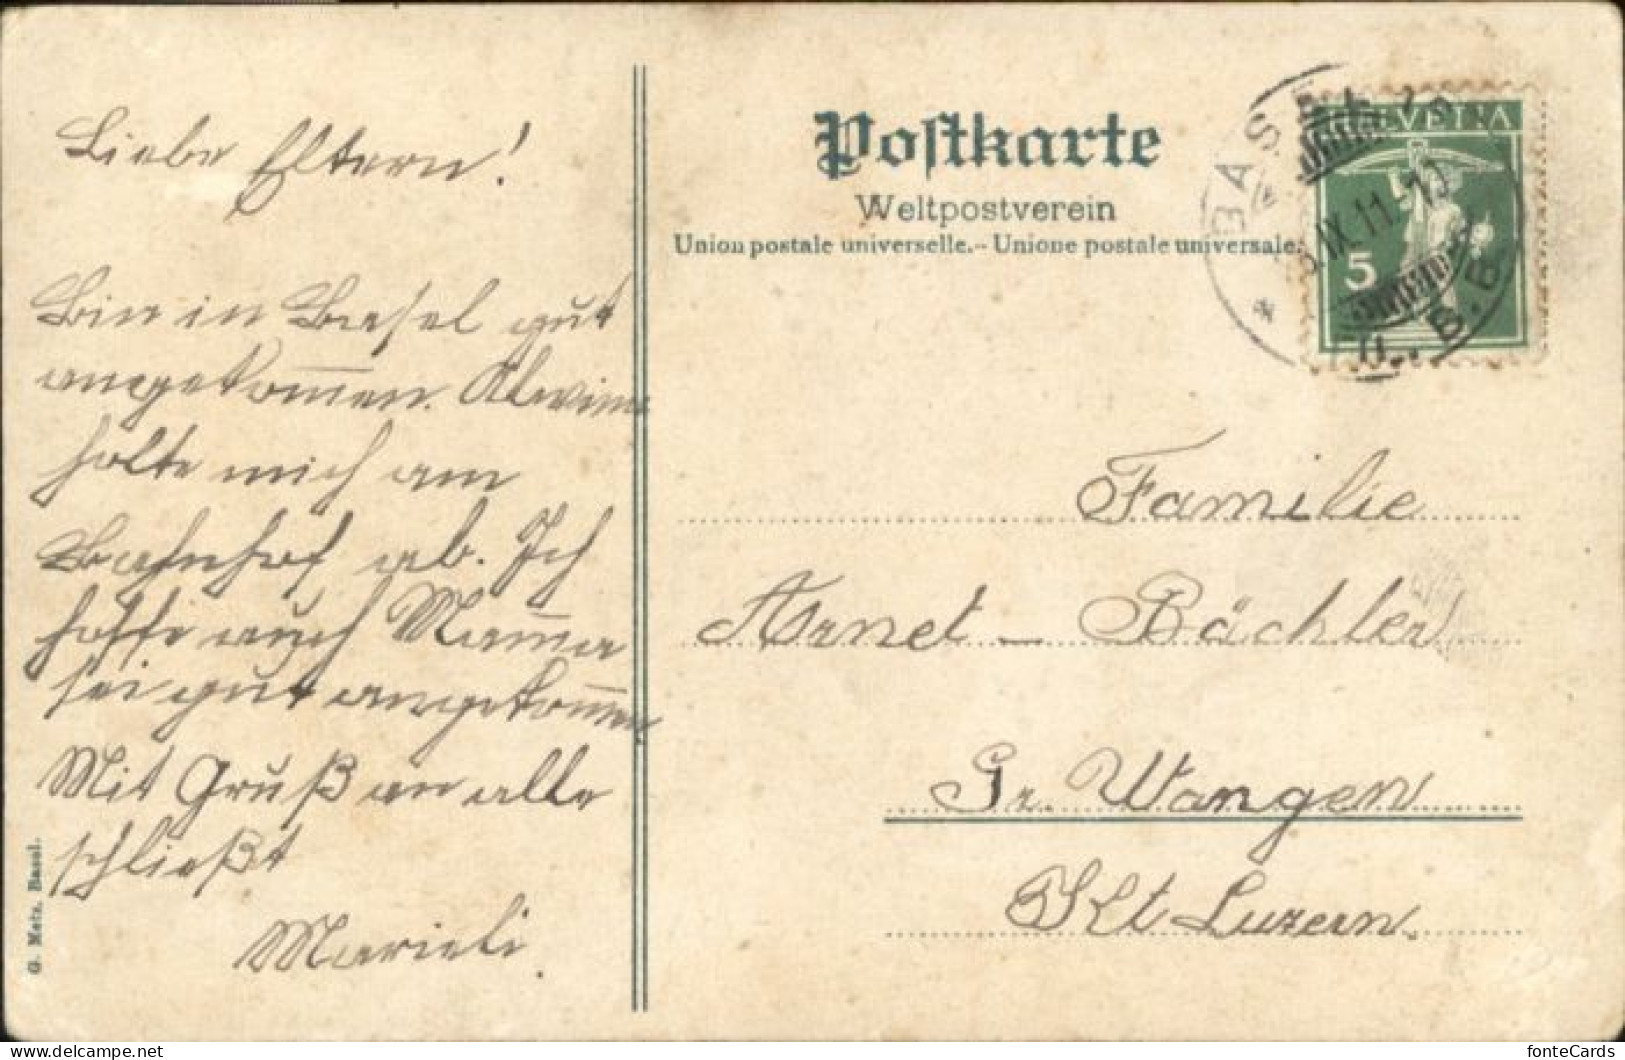 Liebe Eltern!
Bin in Basel gut
angekommen. Alwine
holte mich am
Bahnhof ab. Ich
hoffe auch Mama
sei gut angekommen
Mit Gruß an alle
schließt
Marieli.
G. Metz, Basel.
Postkarte
Weltpostverein
Union postale universelle. - Unione postale universale.
BASEL
IX. 11. - 10
B. B.
HELVETIA
5
Familie
Arnet - Bächler
Gr. Wangen
Kt Luzern.
fonteCards